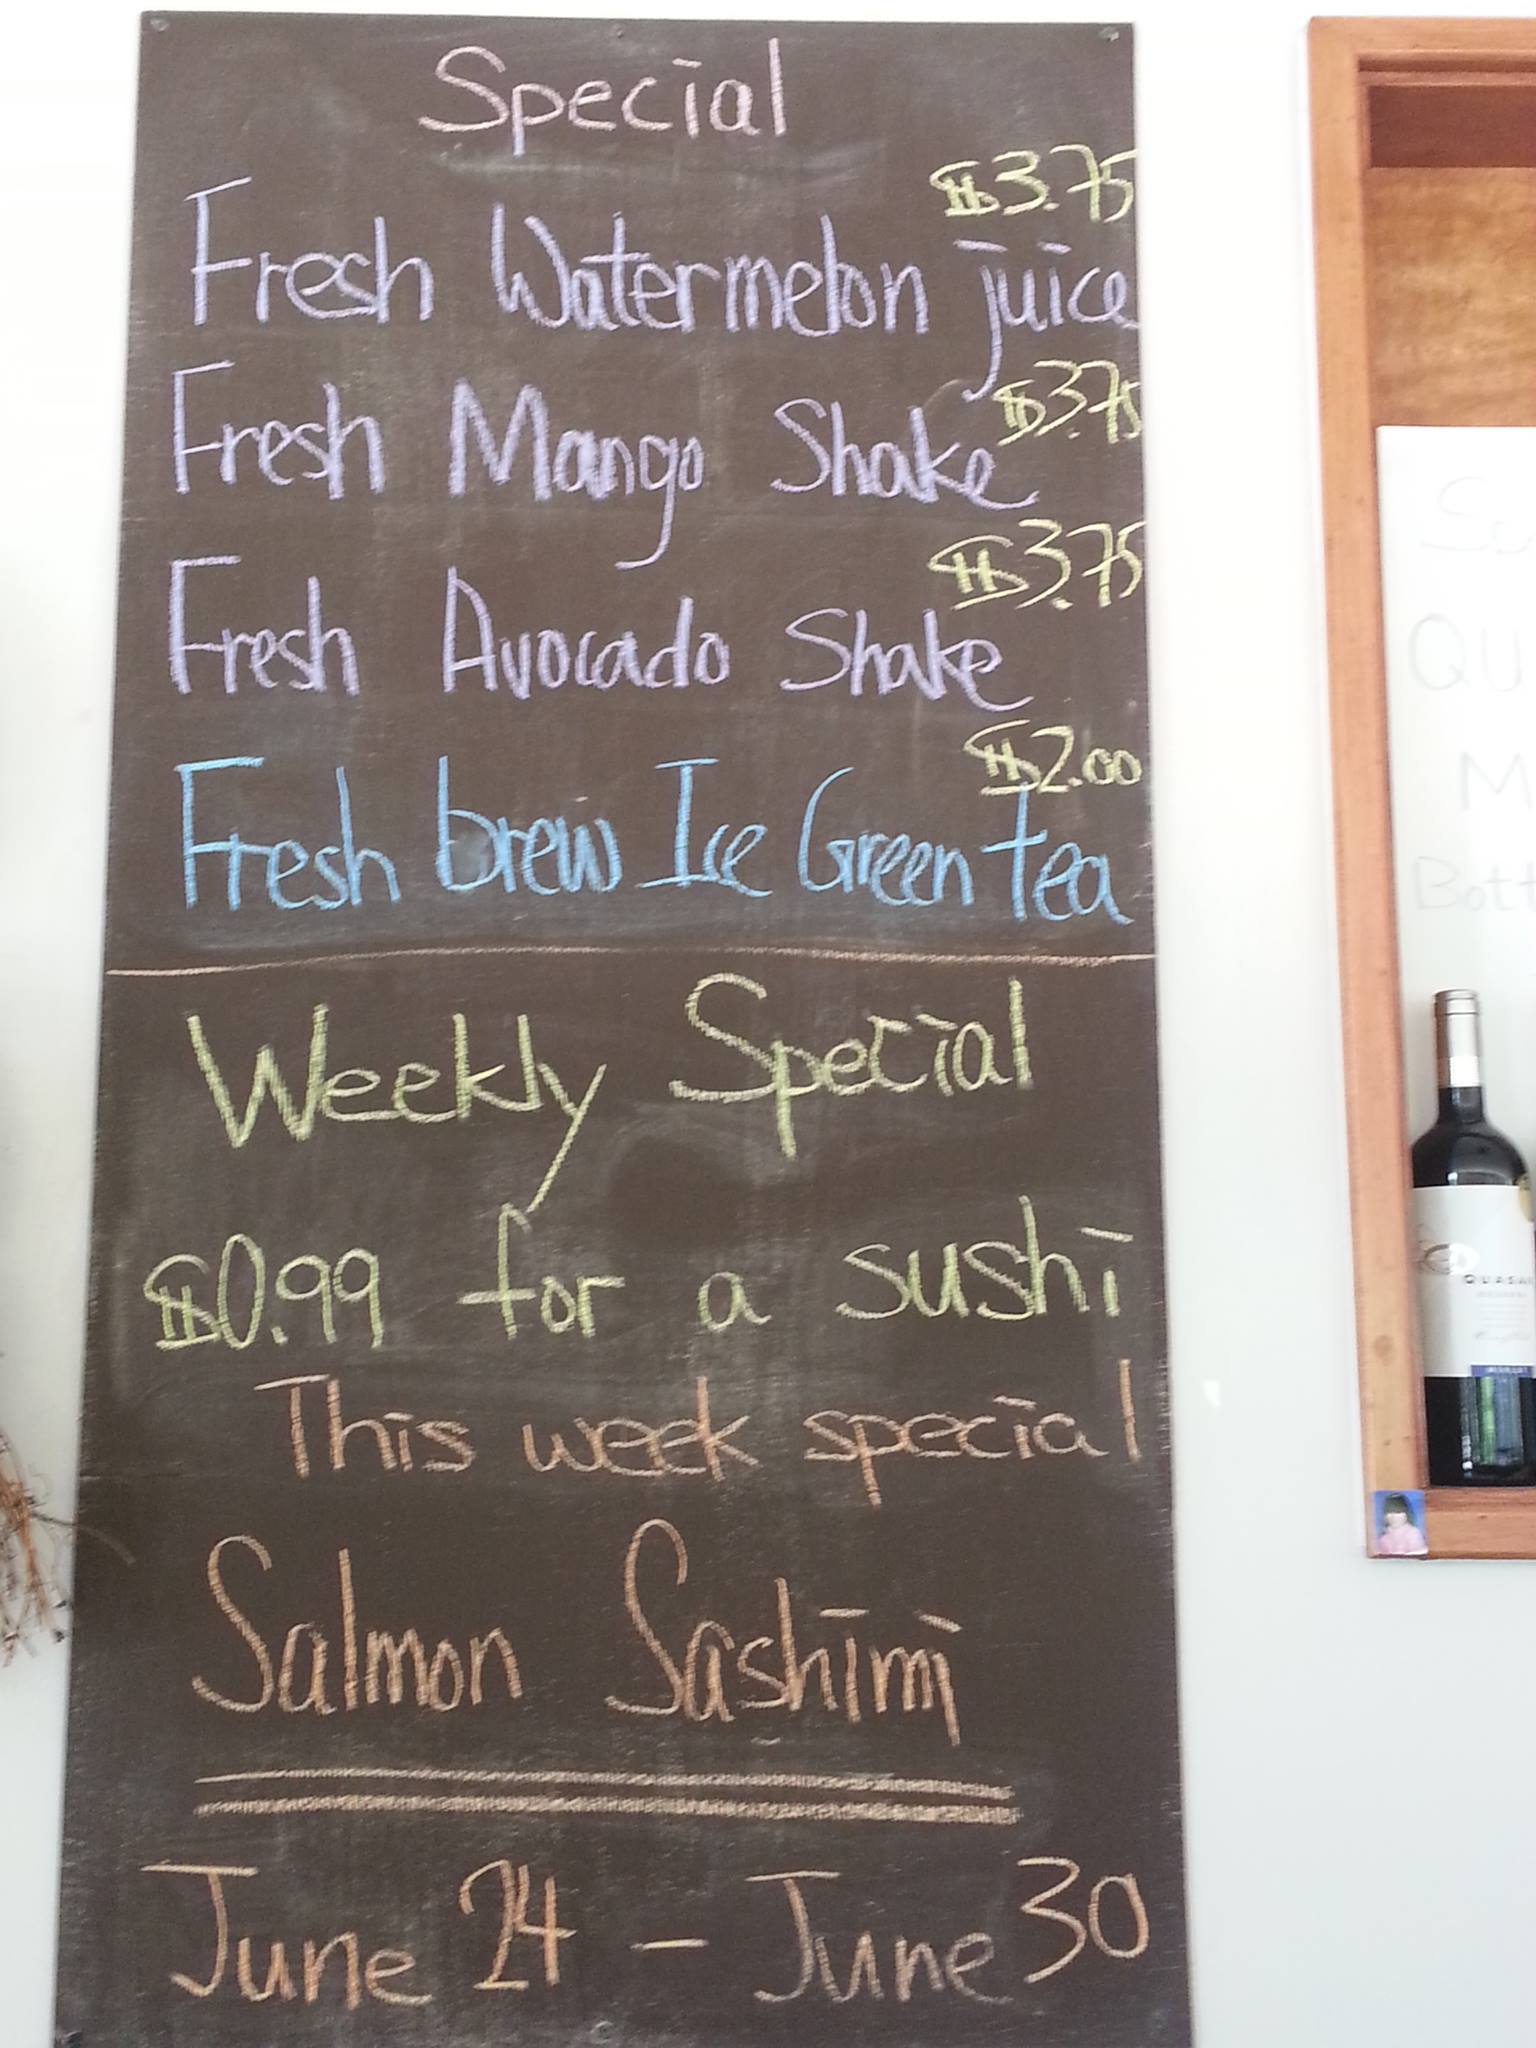 Special
$3.75
Fresh Watermelon juice
$3.75
Fresh Mango Shake
$3.75
Fresh Avocado Shake
$2.00
Fresh brew Ice Green tea
Weekly Special
$0.99 for a sushi
This week special
Salmon Sashimi
June 24 - June 30
QU
M
Bott
QUASA
MERLOT